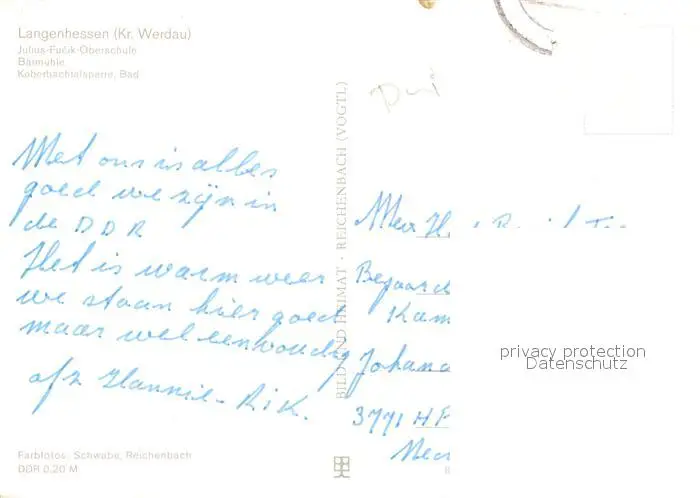 Langenhessen (Kr. Werdau)
Julius-Fučik-Oberschule
Bänmühle
Koberbachtalsperre, Bad
Met ons is alles
goed we zijn in
de DDR
Het is warm weer
we staan hier goed
maar wel eenvoudig
afz Hannie - Rik.
BILD UND HEIMAT · REICHENBACH (VOGTL)
Mevr H
Bejaard
Kam
Johana
3771 HE
Ned
privacy protection
Datenschutz
Farbfotos: Schwabe, Reichenbach
DDR 0,20 M